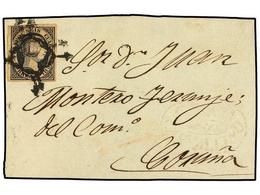 Sor Dn Juan
Montero Zeranje;
del Como
Coruña